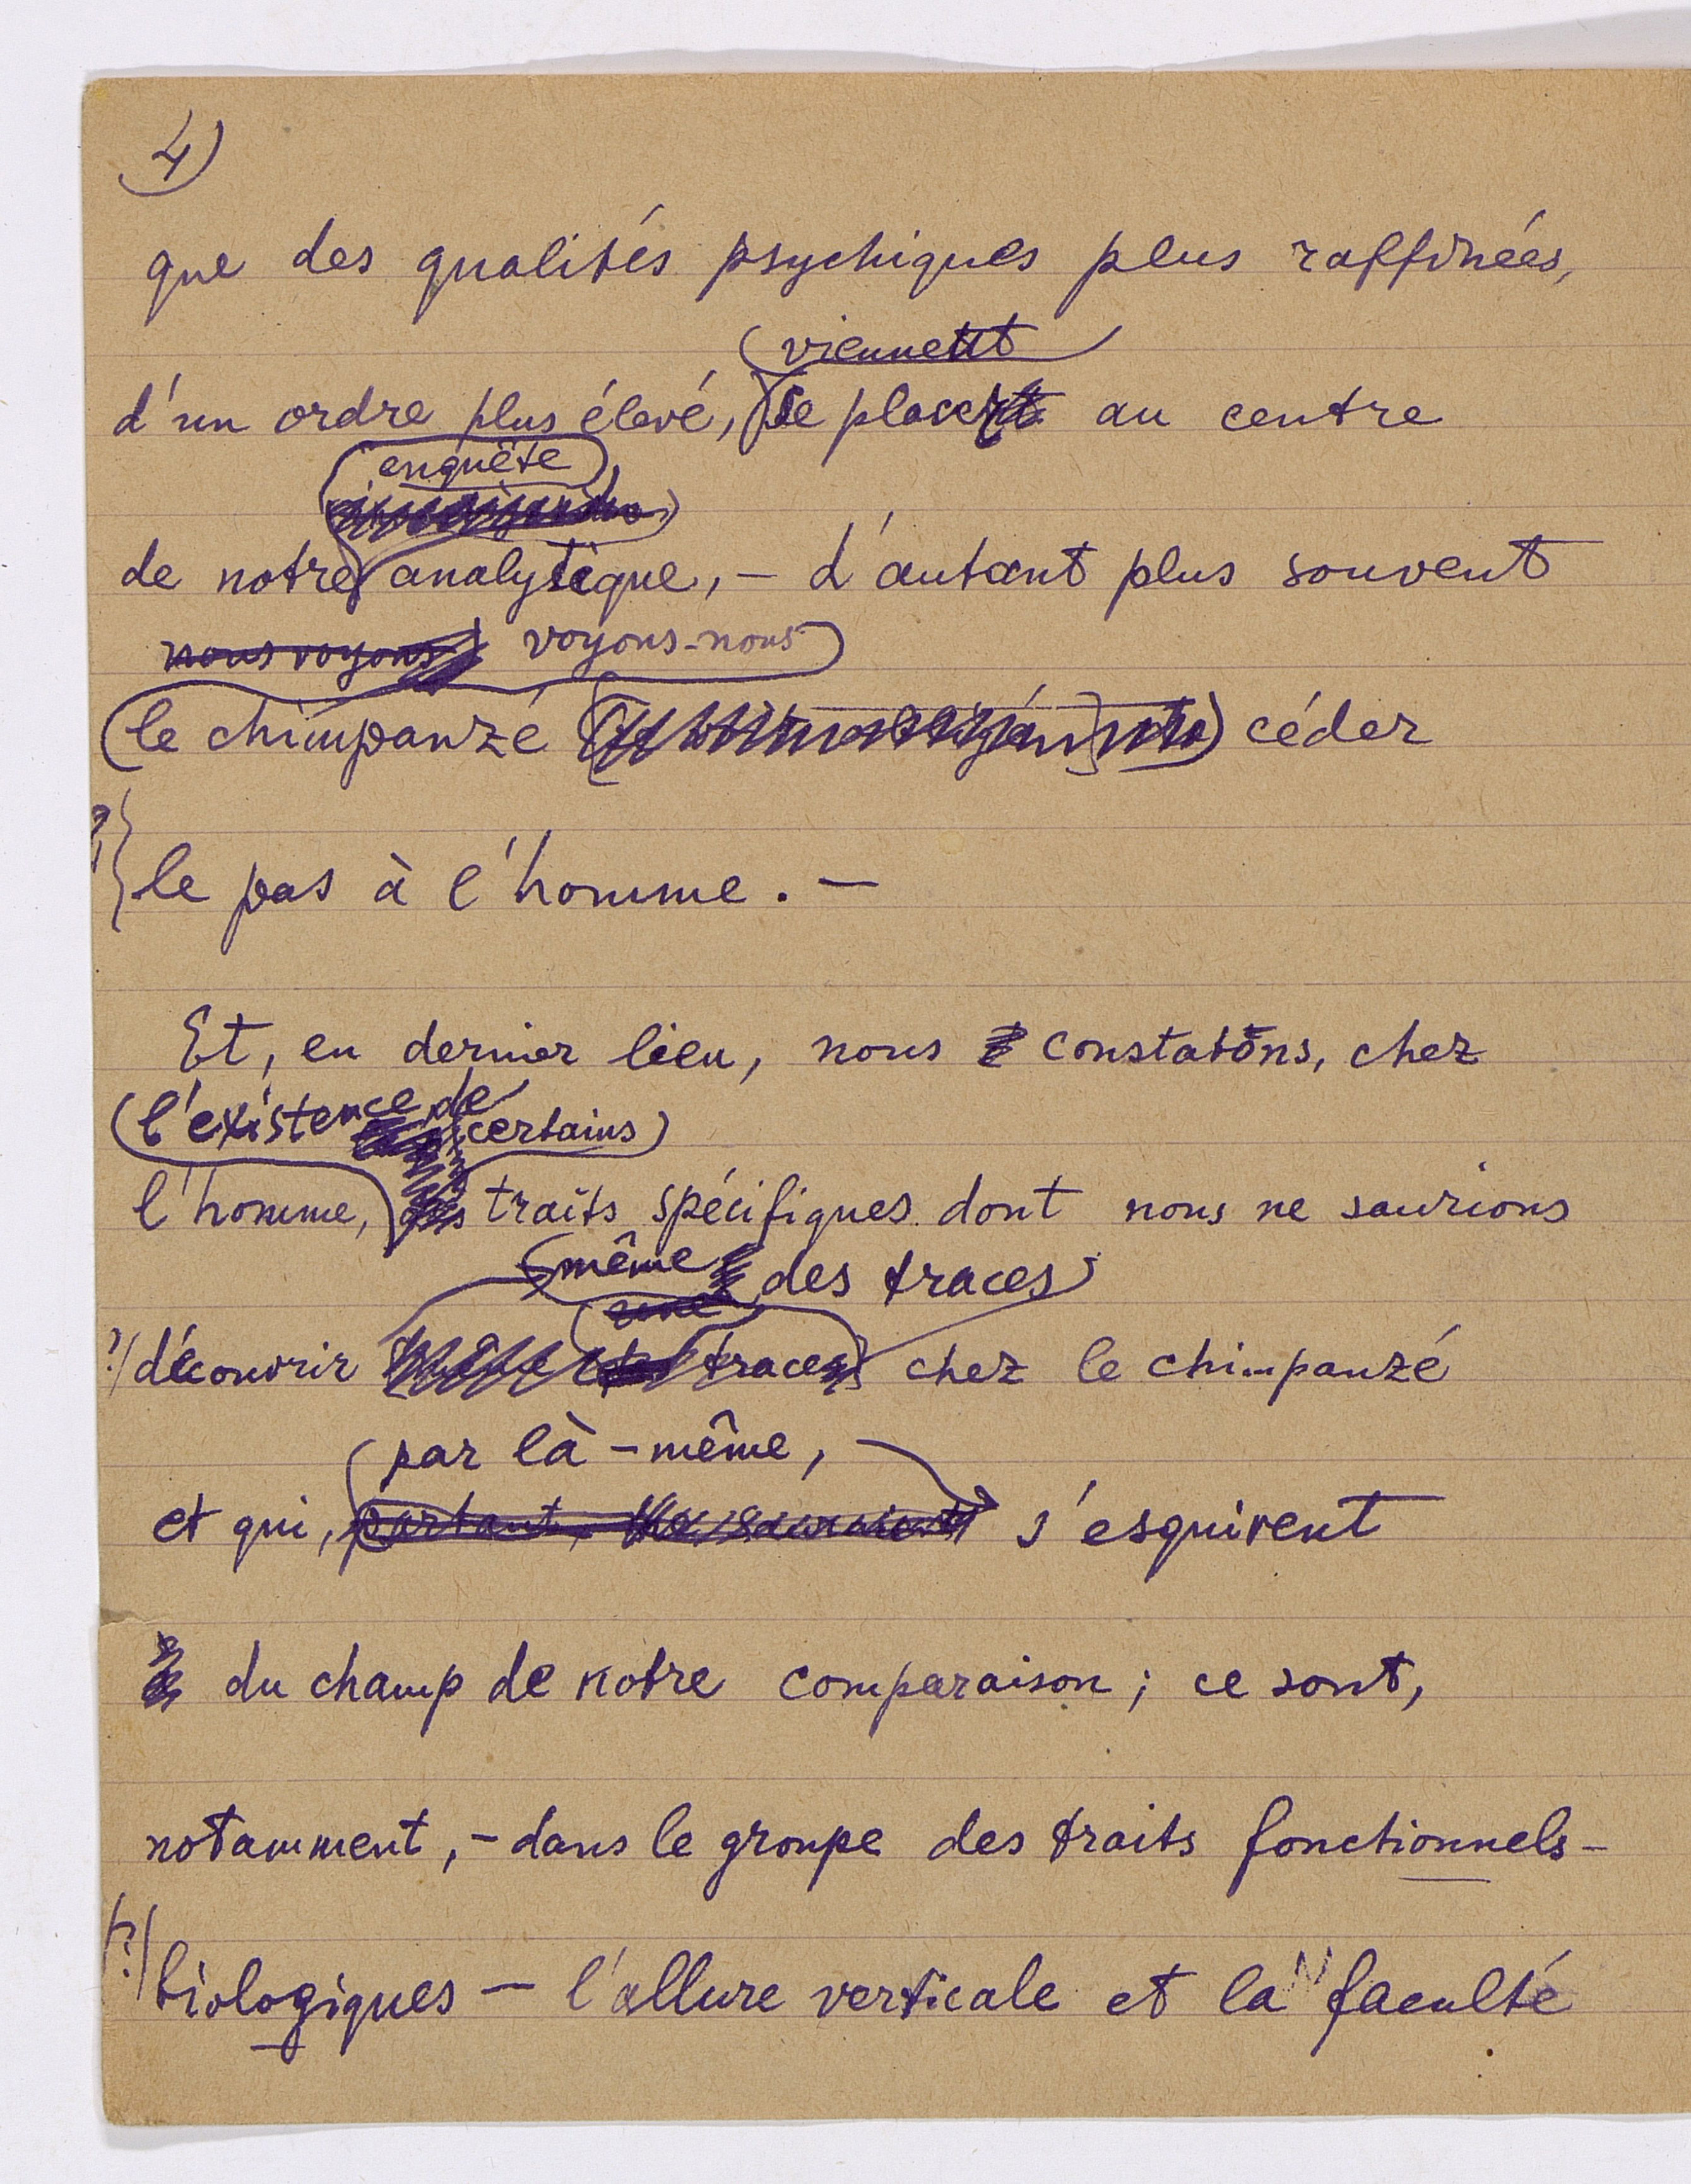 4)
que des qualités psychiques plus raffinées,
viennent
d'un ordre plus élevé, se placer au centre
enquête
de notre analytique, – d'autant plus souvent
nous voyons voyons-nous
le chimpanzé céder
?
le pas à l'homme. –
Et, en dernier lieu, nous constatons, chez
l'existence de certains
l'homme, des traits spécifiques dont nous ne saurions
même des traces
?/ découvrir même traces chez le chimpanzé
par là-même,
et qui, partant, ne sauraient s'esquivent
du champ de notre comparaison; ce sont,
notamment, – dans le groupe des traits fonctionnels-
?/ biologiques – l'allure verticale et la faculté